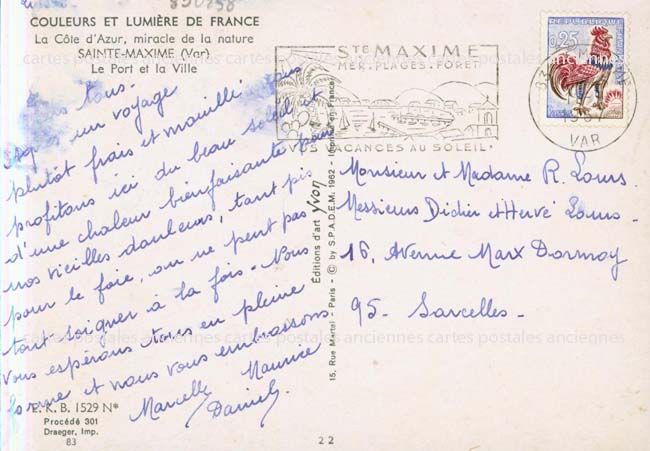 COULEURS ET LUMIÈRE DE FRANCE
La Côte d'Azur, miracle de la nature
SAINTE-MAXIME (Var)
Le Port et la Ville
tous.
Après un voyage
plutôt frais et mouillé nous
profitons ici du beau soleil et
d'une chaleur bienfaisante pour
nos vieilles douleurs, tant pis
pour le foie, on ne peut pas
tout soigner à la fois. Nous
vous espérons tous en pleine
forme et nous vous embrassons
Marcelle Maurice
Daniel
E.K.B. 1529 N*
Procédé 301
Draeger, Imp.
83
Éditions d'art yvon
15, Rue Martel - Paris - © by S.P.A.D.E.M. 1962 - Imprimé en France
STE MAXIME
MER. PLAGES. FORÊT
VOS VACANCES AU SOLEIL
0,25
VAR
Monsieur et Madame R. Louis.
Messieurs Didier et Hervé Louis.
16, Avenue Marx Dormoy
95. Sarcelles.
22
cartes postales anciennes cartes postales anciennes cartes postales anciennes